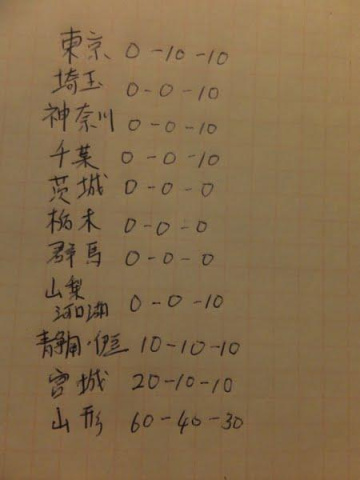 東京 0-10-10
埼玉 0-0-10
神奈川 0-0-10
千葉 0-0-10
茨城 0-0-0
栃木 0-0-0
群馬 0-0-0
山梨
河口湖 0-0-10
静岡・伊豆 10-10-10
宮城 20-10-10
山形 60-40-30